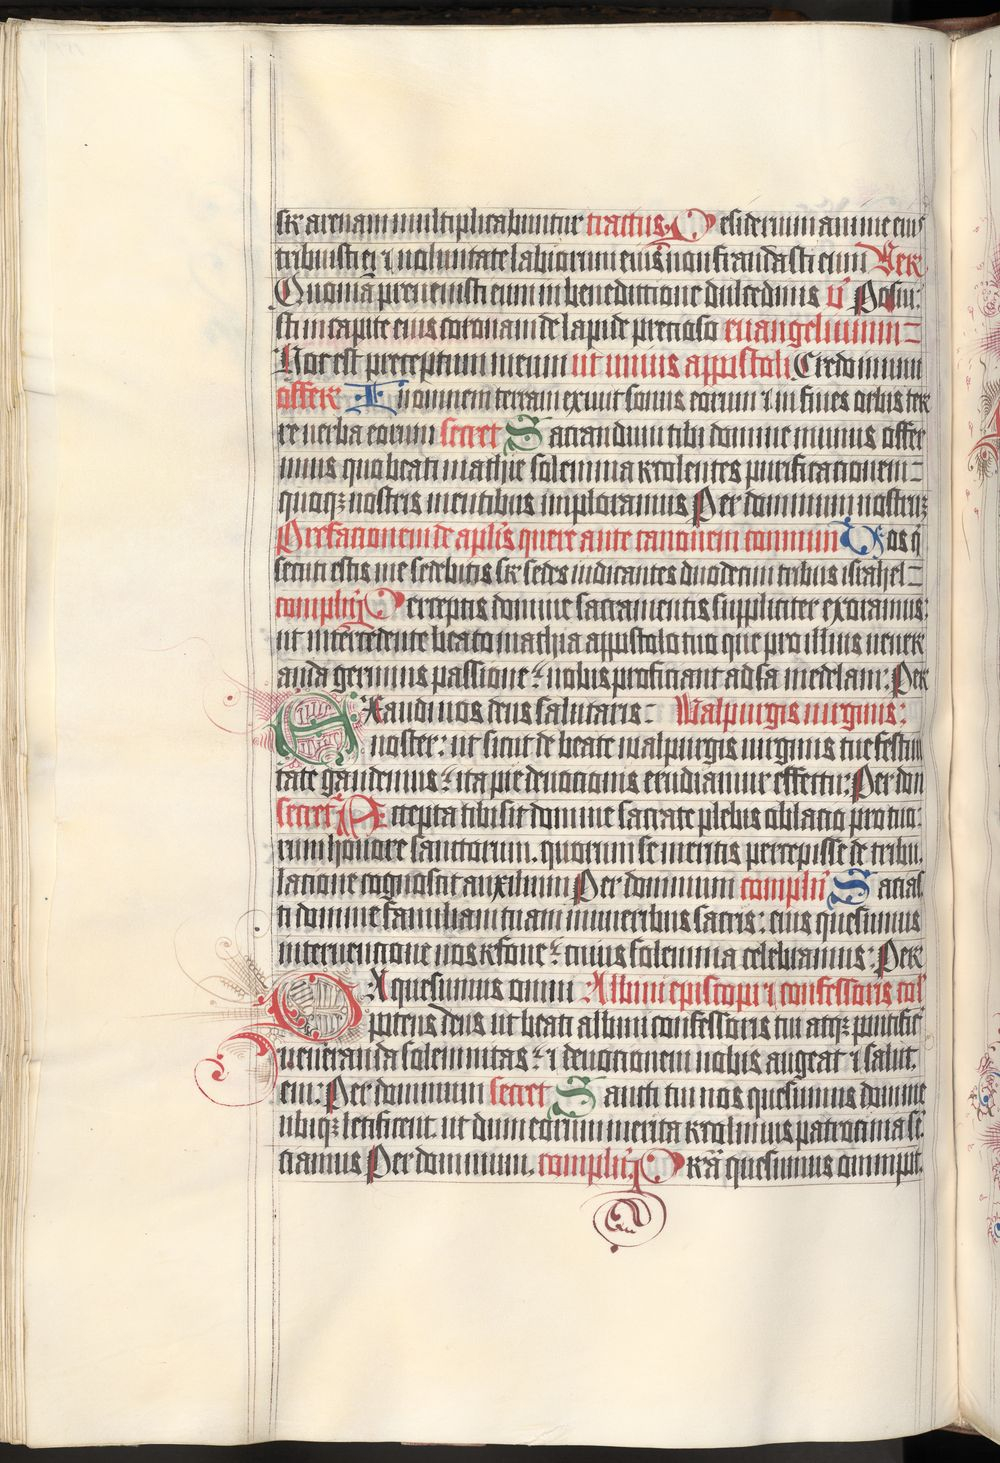 sic arenam multiplicabuntur tractus Desiderium anime eius
tribuisti ei ⁊ uoluntate labiorum eius non fraudasti eum Ver
Quoniā preuenisti eum in benedictione dulcedinis v̄ Posui:
sti in capite eius coronam de lapide precioso euangelium =
Hoc est preceptum meum ut unius appostoli Credo in unum
offert In omnem terram exiuit sonus eorum ⁊ in fines orbis ter
re uerba eorum secret Sacrandum tibi domine munus offer
imus quo beati mathie solemnia recolentes purificationem =
quoqꝫ nostris mentibus imploramus Per dominum nostruꝫ
Prefationem de aplīs quere ante canonem comun Vos q̄
secuti estis me sedebitis sr sedes iudicantes duodecim tribus israhel =
complēn Perceptis domine sacramentis suppliciter exoramus:
ut intercedente beato mathia appostolo tuo que pro illius uener
anda gerimus passione: nobis proficiant ad sa medelam: Per
Exaudi nos deus salutaris: Walpurgis uirginis:
noster: ut sicut de beate walpurgis uirginis tue festiui
tate gaudemus: ita pie deuocionis erudiamur effectu: Per dom
secret Accepta tibi sit domine sacrate plebis oblatio pro tuo:
rum honore sanctorum. quorum se meritis percepisse de tribu.
latione cognoscat auxilium Per dominum complēn Satias
ti domine familiam tuam muneribus sacris: eius quesumus
interuentione nos refoue: cuius solemnia celebramus: Per
Da quesumus omni Albini episcopi ⁊ confessoris col
potens deus ut beati albini confessoris tui atqꝫ pontific
ueneranda solemnitas: ⁊ deuotionem nobis augeat ⁊ salut.
em: Per dominum secret Sancti tui nos quesumus domine
ubiqꝫ letificent. ut dum eorum merita recolimus patrocinia sē
ciamus Per dominum. complēn Prā quesumus omnipt.